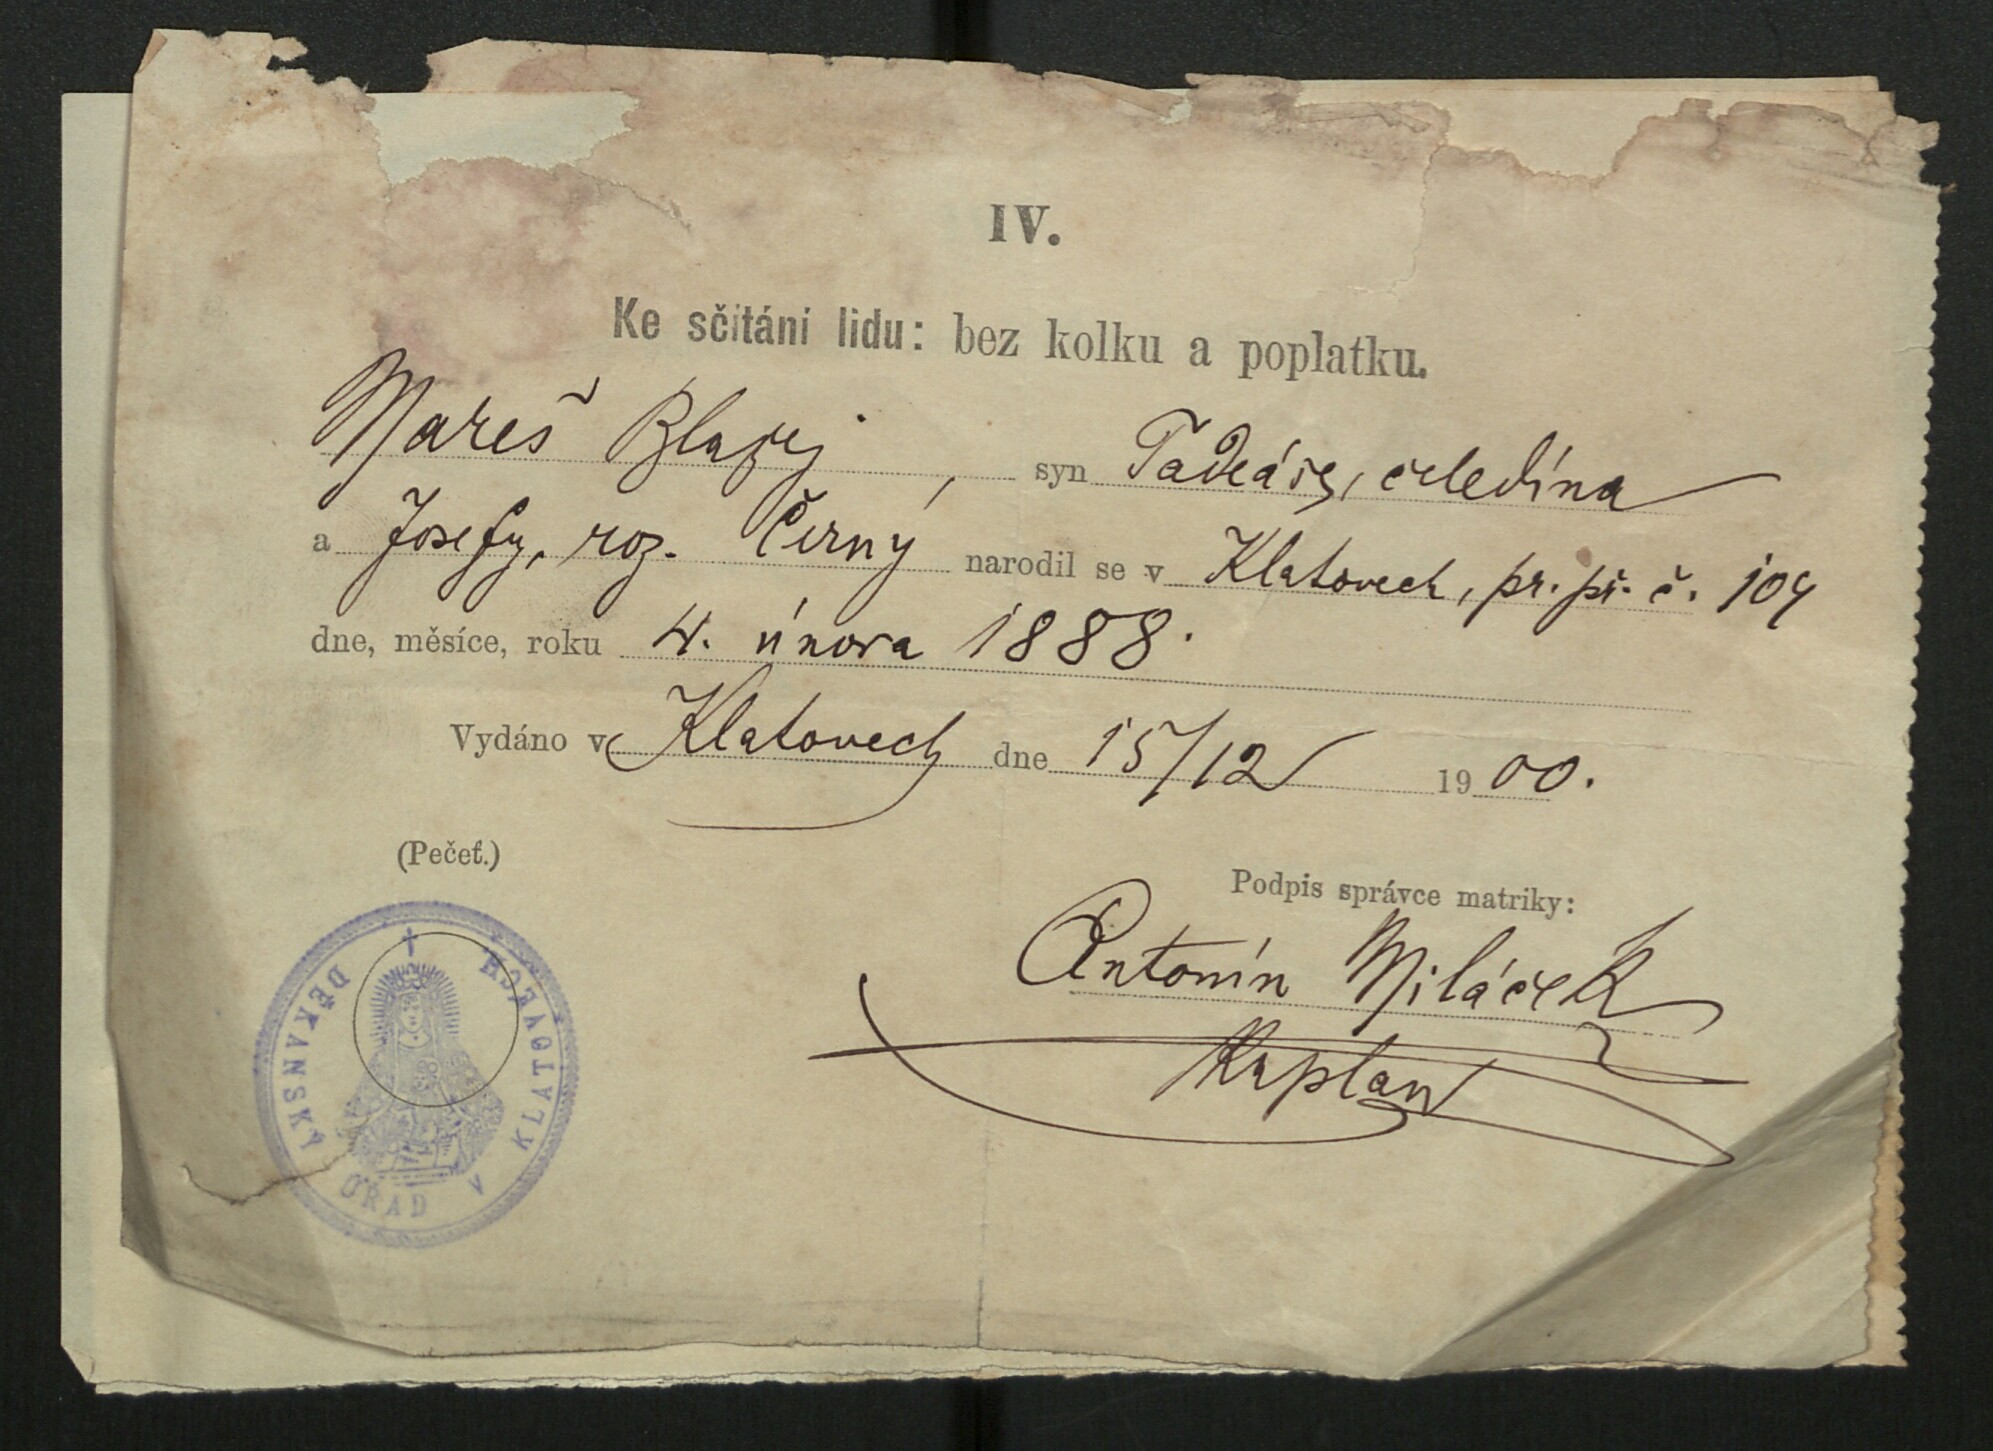 IV.
Ke sčítání lidu: bez kolku a poplatku.
Mareš Blažej, syn Tadeáše, čeledína
a Josefy, roz. Černý narodil se v Klatovech, pr. př. č. 109
dne, měsíce, roku 4. února 1888.
Vydáno v Klatovech dne 15/12 1900.
(Pečeť.)
Podpis správce matriky:
Antonín Miláček
Kaplan
DĚKANSKÝ ÚŘAD V KLATOVECH